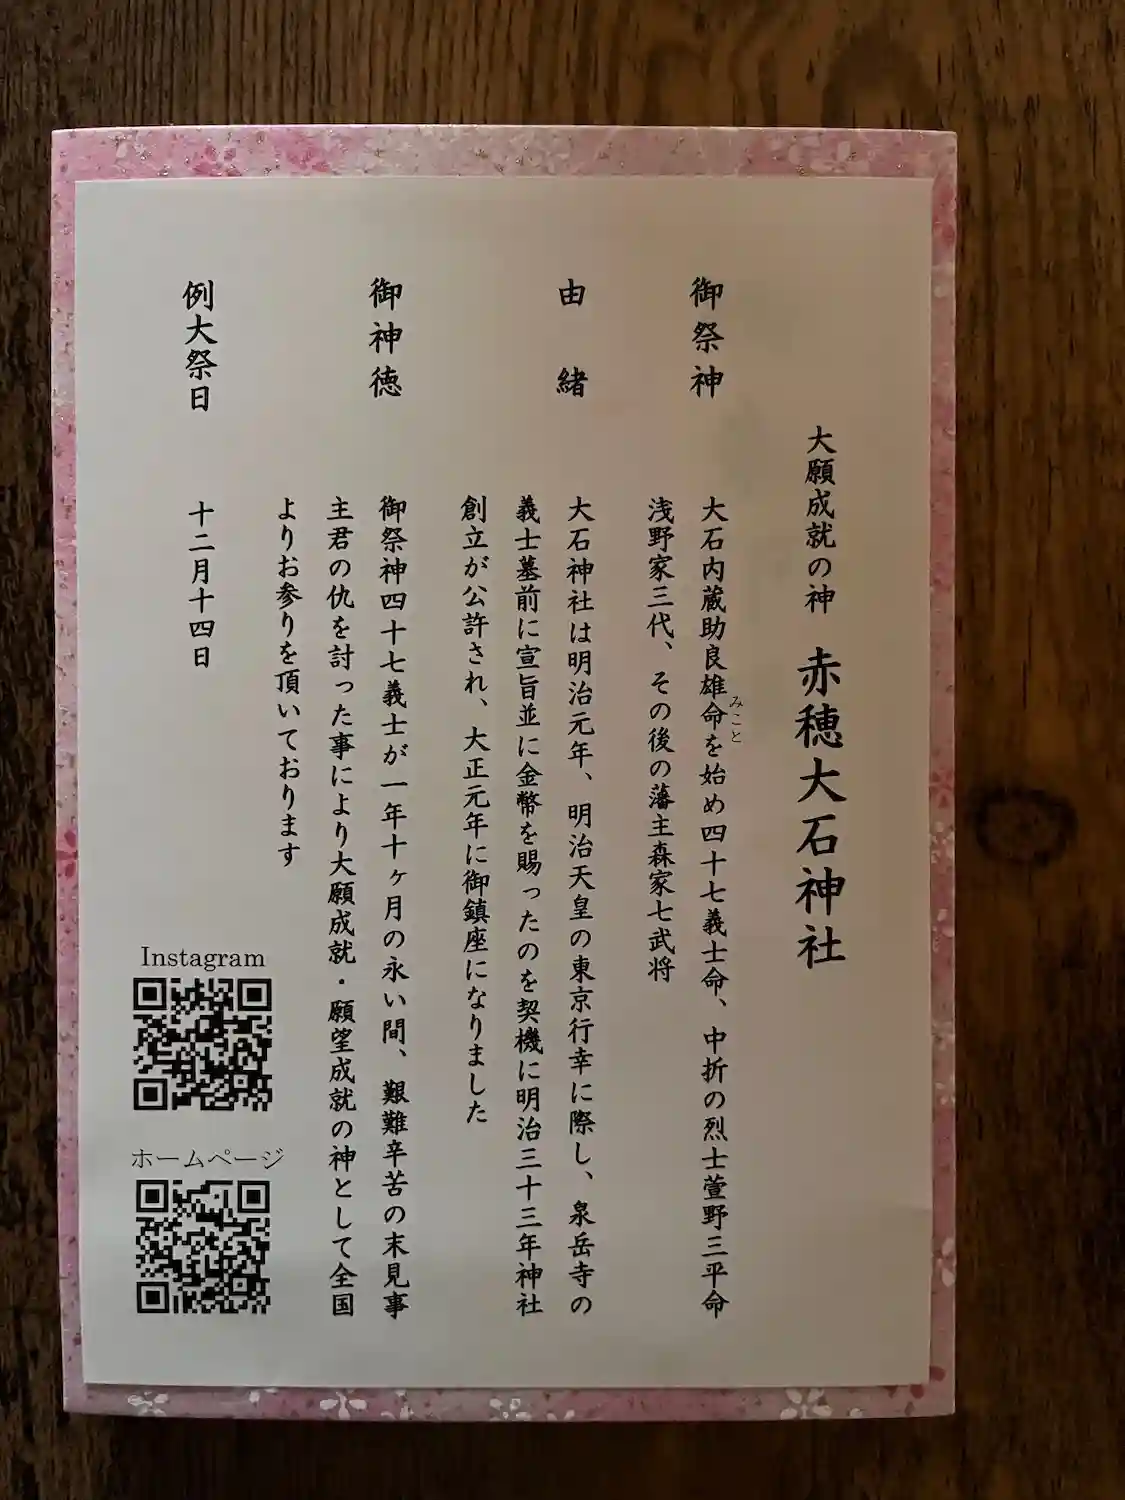 大願成就の神 赤穂大石神社
御祭神 大石内蔵助良雄命を始め四十七義士命、中折の烈士萱野三平命
みこと
浅野家三代、その後の藩主森家七武将
由緒 大石神社は明治元年、明治天皇の東京行幸に際し、泉岳寺の
義士墓前に宣旨並に金幣を賜ったのを契機に明治三十三年神社
創立が公許され、大正元年に御鎮座になりました
御神徳 御祭神四十七義士が一年十ヶ月の永い間、艱難辛苦の末見事
主君の仇を討った事により大願成就・願望成就の神として全国
よりお参りを頂いております
例大祭日 十二月十四日
Instagram
ホームページ